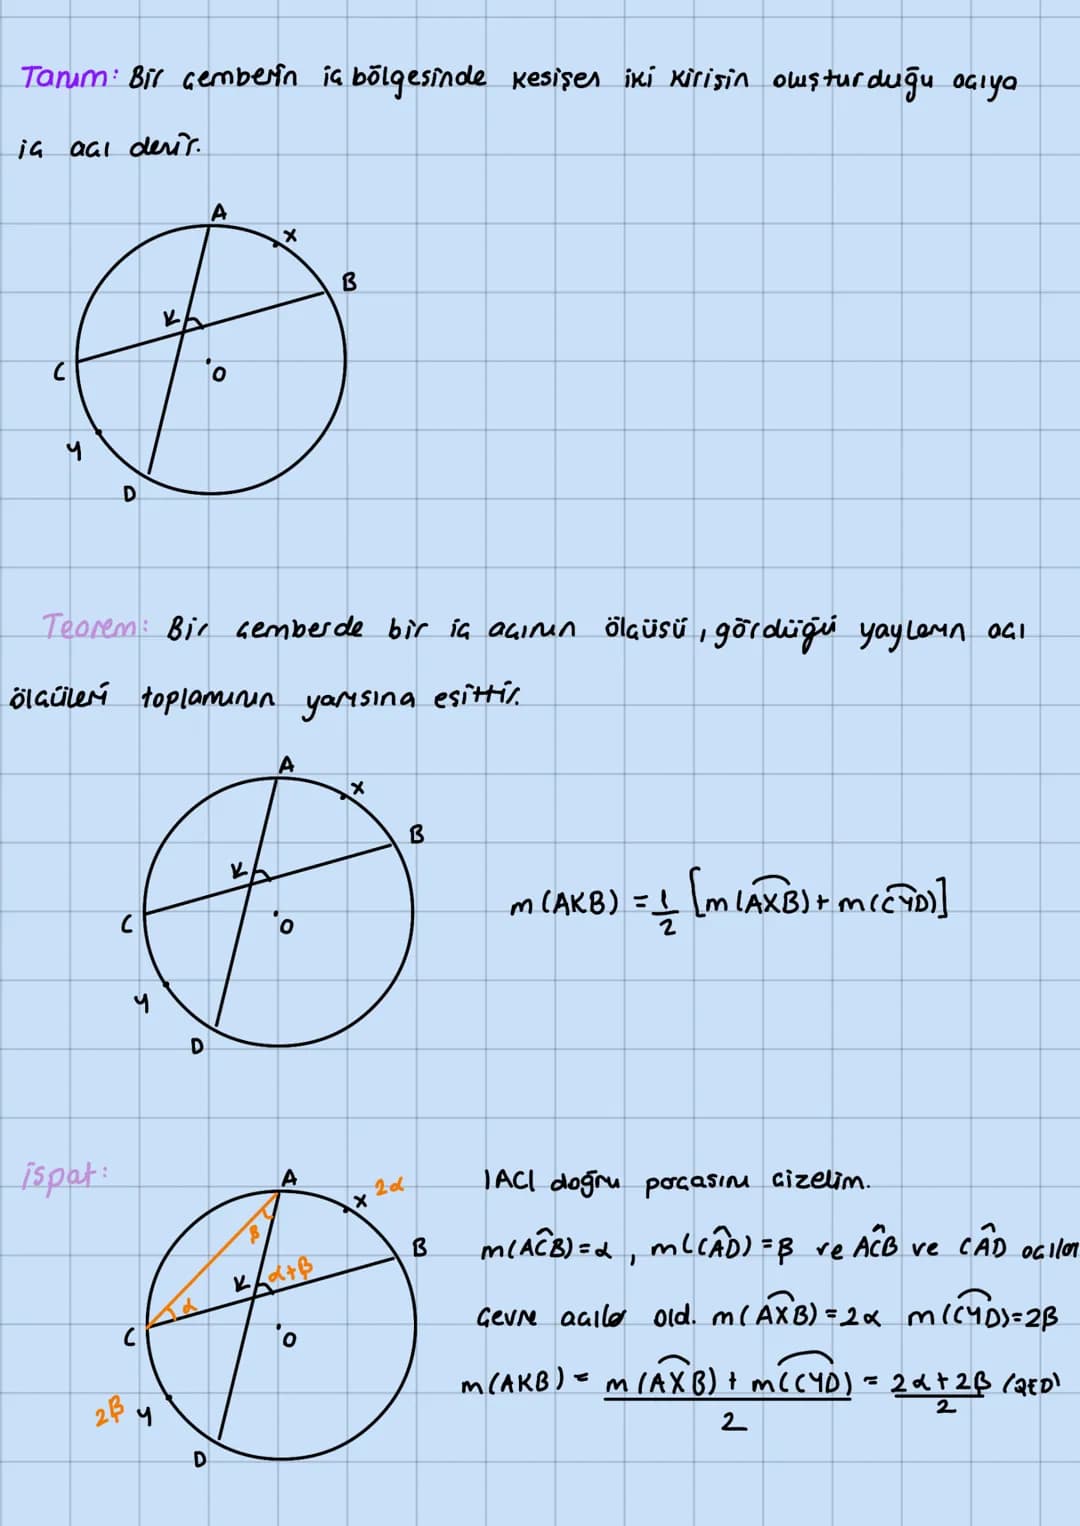 Tanım: Bir çemberin iç bölgesinde kesişen iki kirişin oluşturduğu açıya
iç açı denir.
A
x
B
K
C
O
y
D
Teorem: Bir çemberde bir iç açının ölçüsü, gördüğü yayların açı
ölçüleri toplamının yarısına eşittir.
A
x
B
K
C
O
y
D
m(AKB) = 1/2 [m(AXB) + m(CYD)]
ispat:
A
x 2α
β
B
K α+β
α
C
O
2β y
D
|AC| doğru parçasını çizelim.
m(AĈB) = α , m(CÂD) = β ve AĈB ve CÂD açıları
Çevre açılar old. m(AXB) = 2α m(CYD) = 2β
m(AKB) = m(AXB) + m(CYD) / 2 = 2α + 2β / 2 (QED)